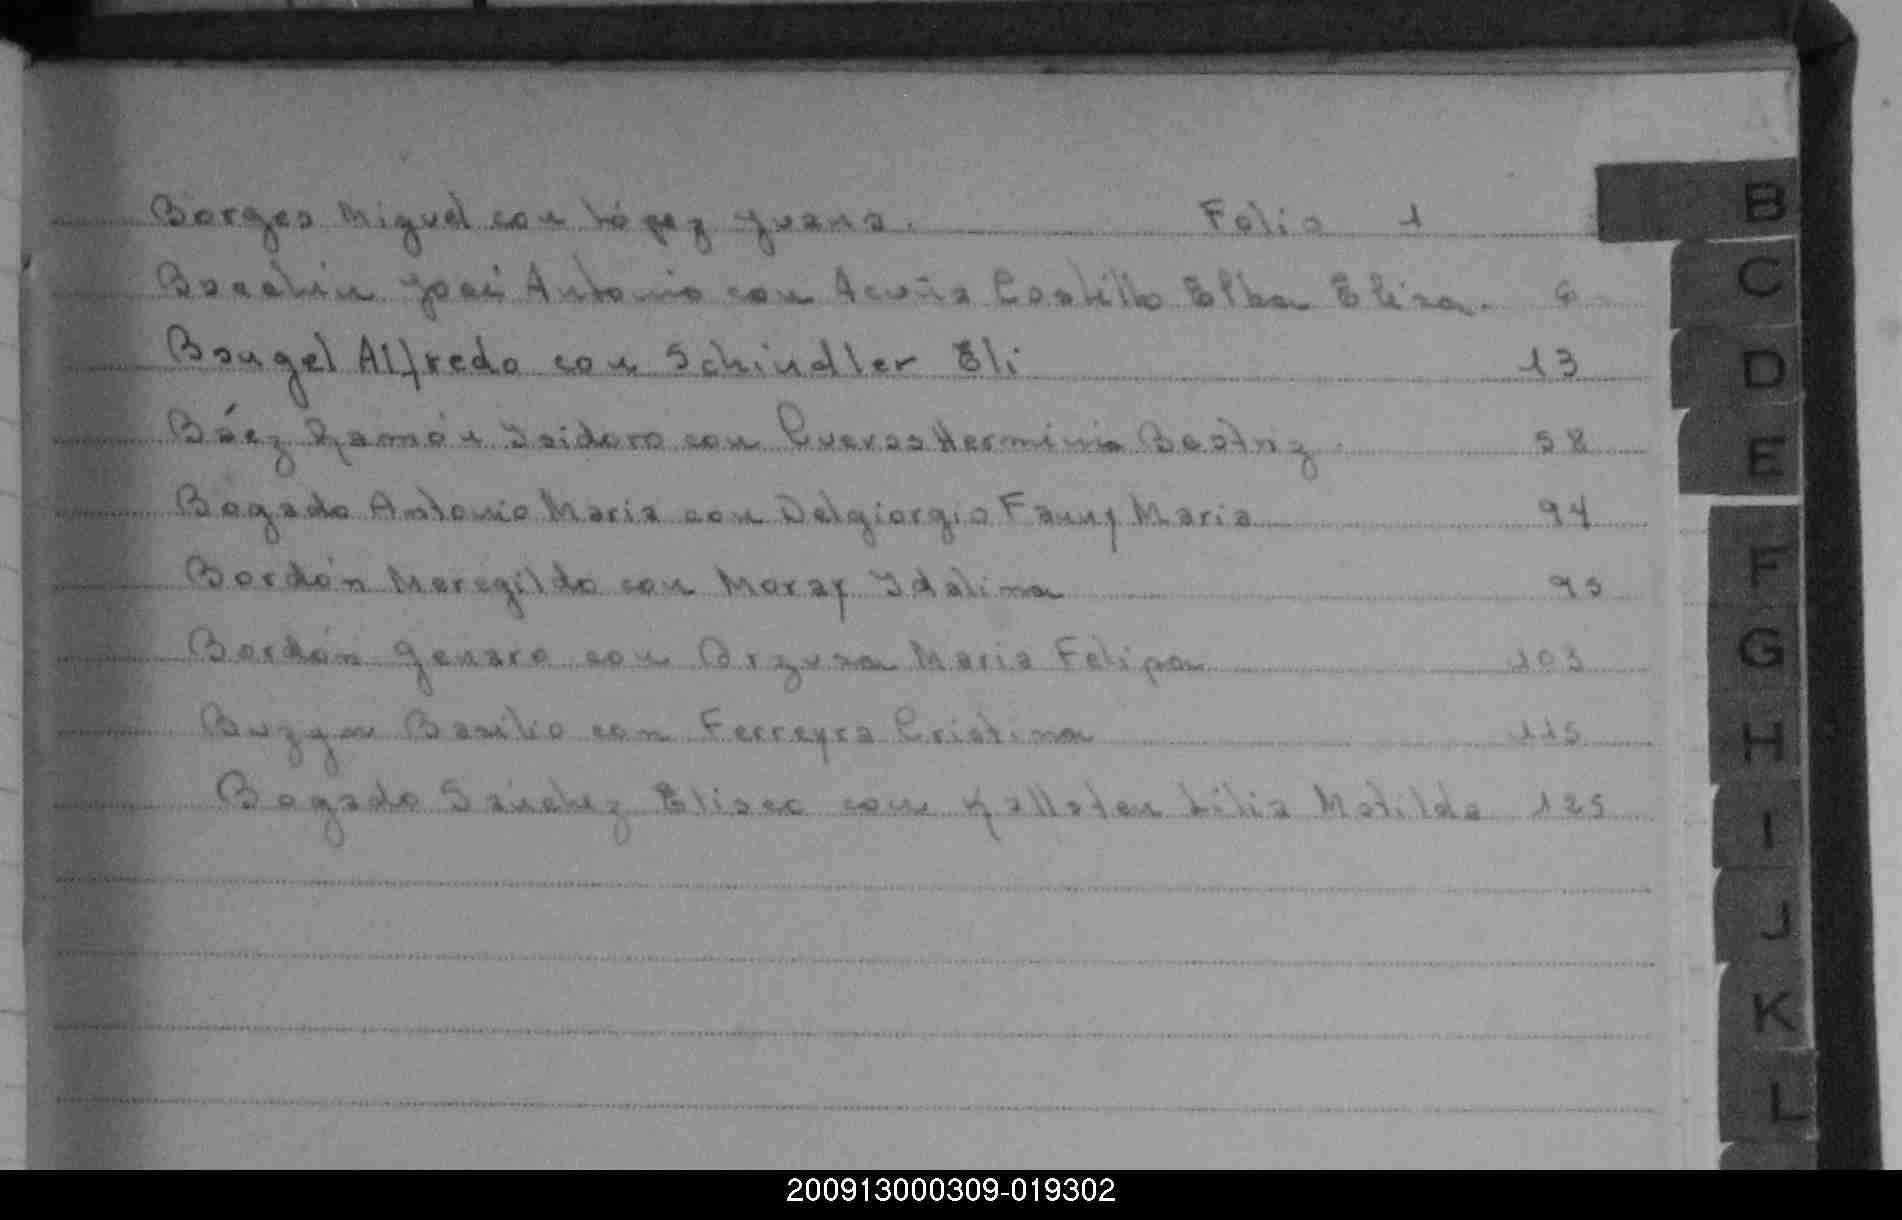 Borges Miguel con López Juana. Folio 1
José Antonio con Acuña Castillo Elba Elisa. 6
Bangel Alfredo con Schindler Eli 13
Báez Ramón Isidoro con Cuevas Herminia Beatriz. 58
Bogado Antonio Maria con Delgiorgio Fanny Maria 94
Bordón Meregildo con Idalina 95
Bordón Genaro con Orzusa Maria Felipa 103
Buzyn Basilio con Ferreyra Cristina 115
Bogado Sánchez Eliseo con Kallsten Lilia Matilde 125
B
C
D
E
F
G
H
I
J
K
L
200913000309-019302